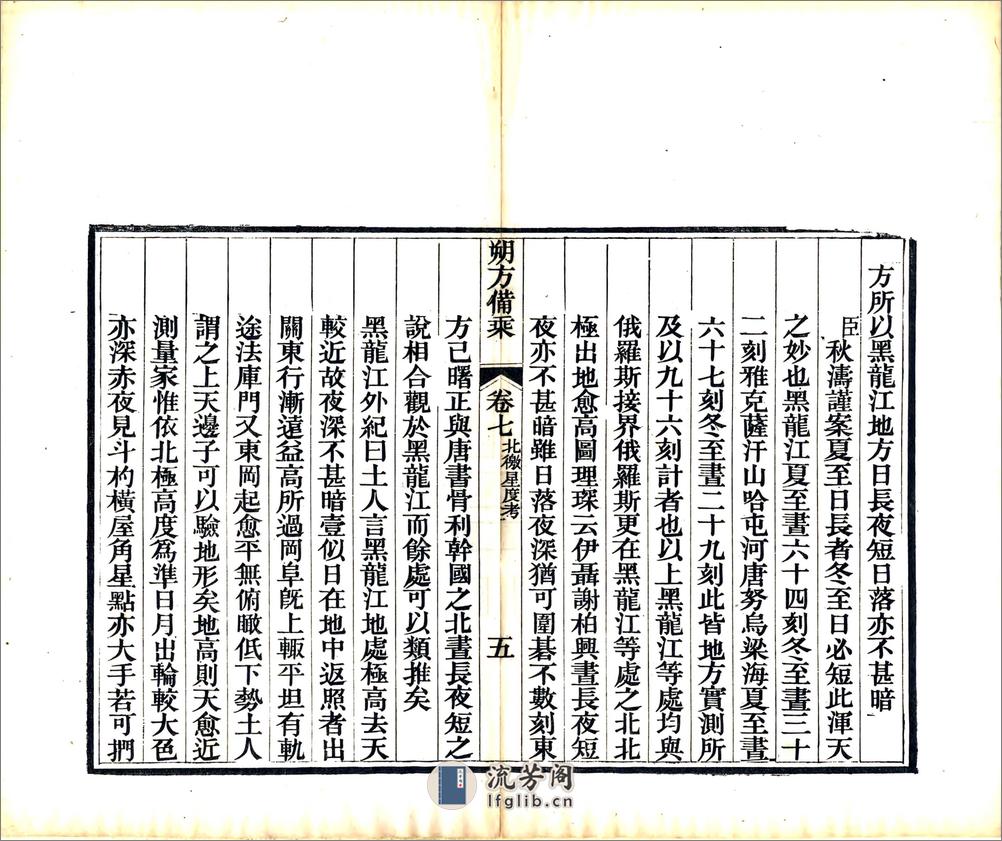 方所以黑龍江地方日長夜短日落亦不甚暗
臣秋濤謹案夏至日長者冬至日必短此渾天
之妙也黑龍江夏至晝六十四刻冬至晝三十
二刻雅克薩汗山哈屯河唐努烏梁海夏至晝
六十七刻冬至晝二十九刻此皆地方實測所
及以九十六刻計者也以上黑龍江等處均與
俄羅斯接界俄羅斯更在黑龍江等處之北北
極出地愈高圖理琛云伊聶謝柏興晝長夜短
夜亦不甚暗雖日落夜深猶可圍碁不數刻東
朔方備乘
卷七
北徼星度考
五
方已曙正與唐書骨利幹國之北晝長夜短之
說相合觀於黑龍江而餘處可以類推矣
黑龍江外紀曰土人言黑龍江地處極高去天
較近故夜深不甚暗壹似日在地中返照者出
關東行漸遠益高所過岡阜旣上輙平坦有軌
途法庫門又東岡起愈平無俯瞰低下勢土人
謂之上天邊子可以驗地形矣地高則天愈近
測量家惟依北極高度爲準日月出輪較大色
亦深赤夜見斗杓橫屋角星點亦大手若可捫
流芳阁
lfglib.cn